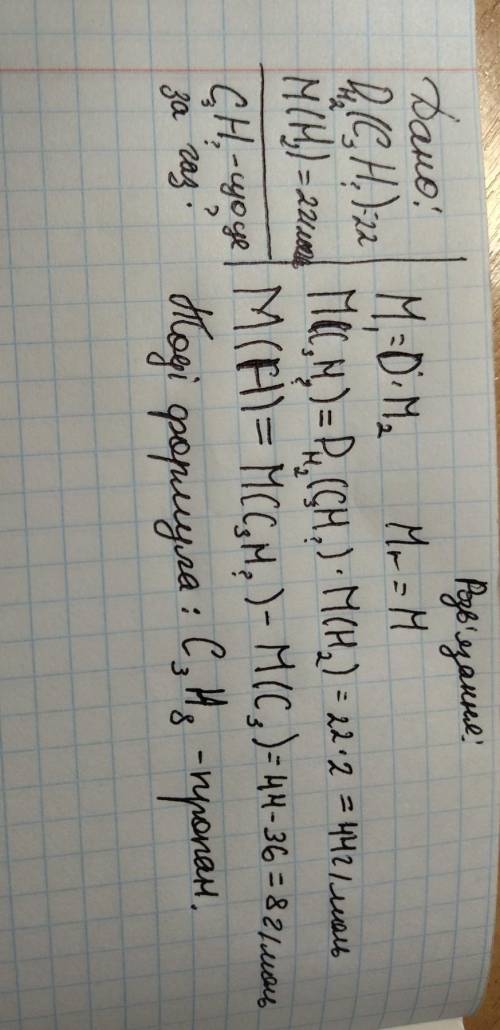 Дано:
D H₂ (C₃H?)=22
M(H₂)=2г/моль
C₃H? - що це
за газ?
Розв'язання:
M₁=D·M₂ Mr=M
M(C₃H?)=D H₂ (C₃H?)·M(H₂)=22·2=44г/моль
M(H)=M(C₃H?)-M(C₃)=44-36=8г/моль
Тоді формула: C₃H₈ - пропан.